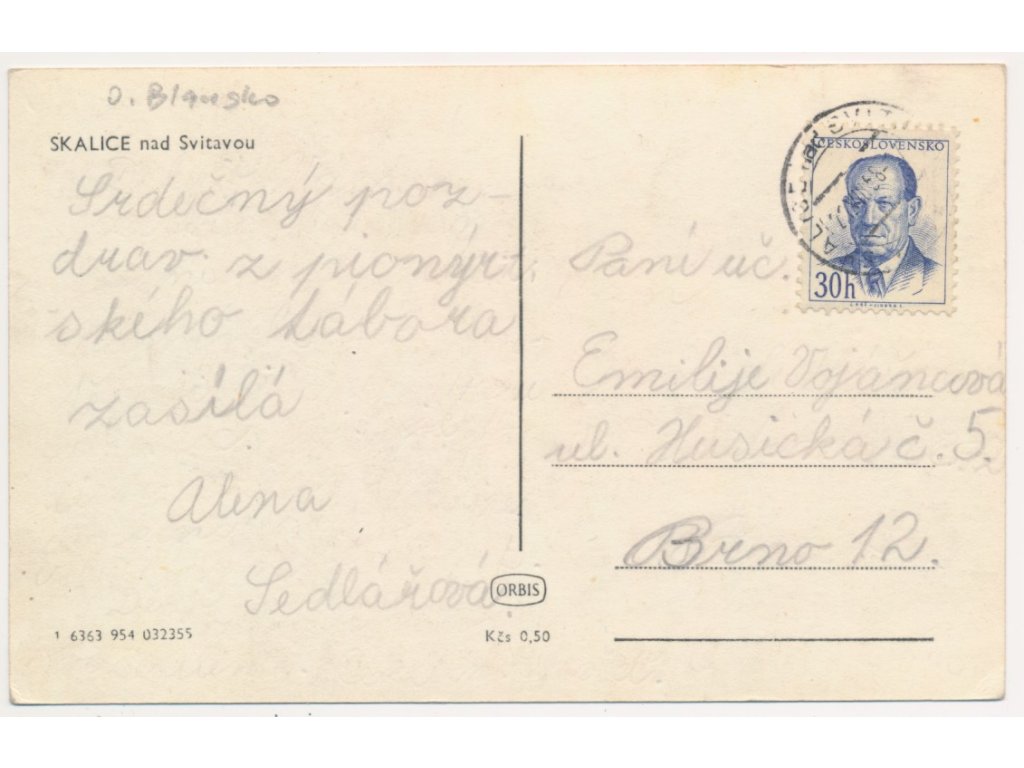 O. Blansko
SKALICE nad Svitavou
Srdečný poz-
drav z pionýr-
ského tábora
zasílá
Alena
Sedlářová
1 6363 954 032355
ČESKOSLOVENSKO
30h
Paní uč.
Emilije Vojáncová
ul. Husická č. 5.
Brno 12.
ORBIS
Kčs 0,50